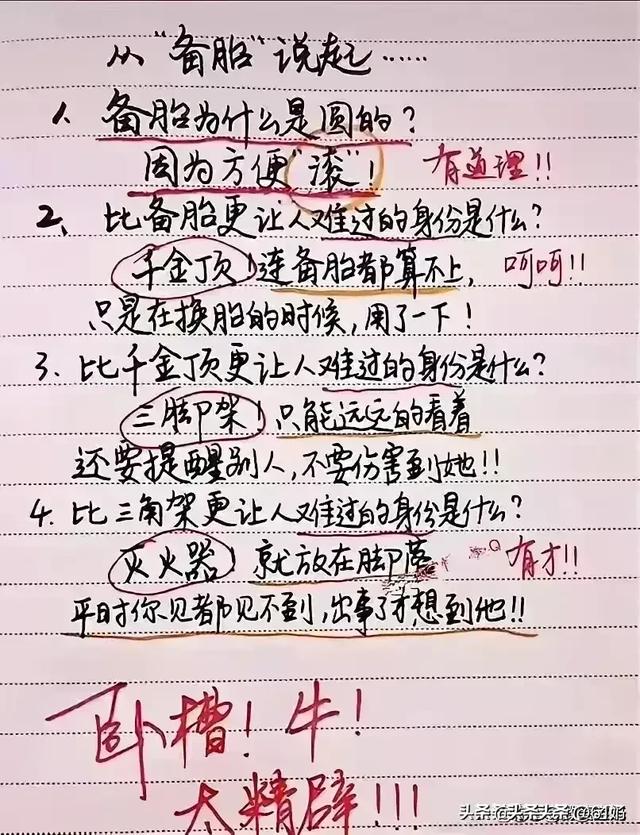 从“备胎”说起……
1、备胎为什么是圆的?
因为方便“滚”! 有道理!!
2、比备胎更让人难过的身份是什么?
千金顶!连备胎都算不上, 呵呵!!
只是在换胎的时候,用了一下!
3、比千金顶更让人难过的身份是什么?
三脚架!只能远远的看着
还要提醒别人,不要伤害到她!!
4、比三角架更让人难过的身份是什么?
灭火器!就放在脚落 有才!!
平时你见都见不到,出事了才想到他!!
卧槽!牛!
太精辟!!!
头条